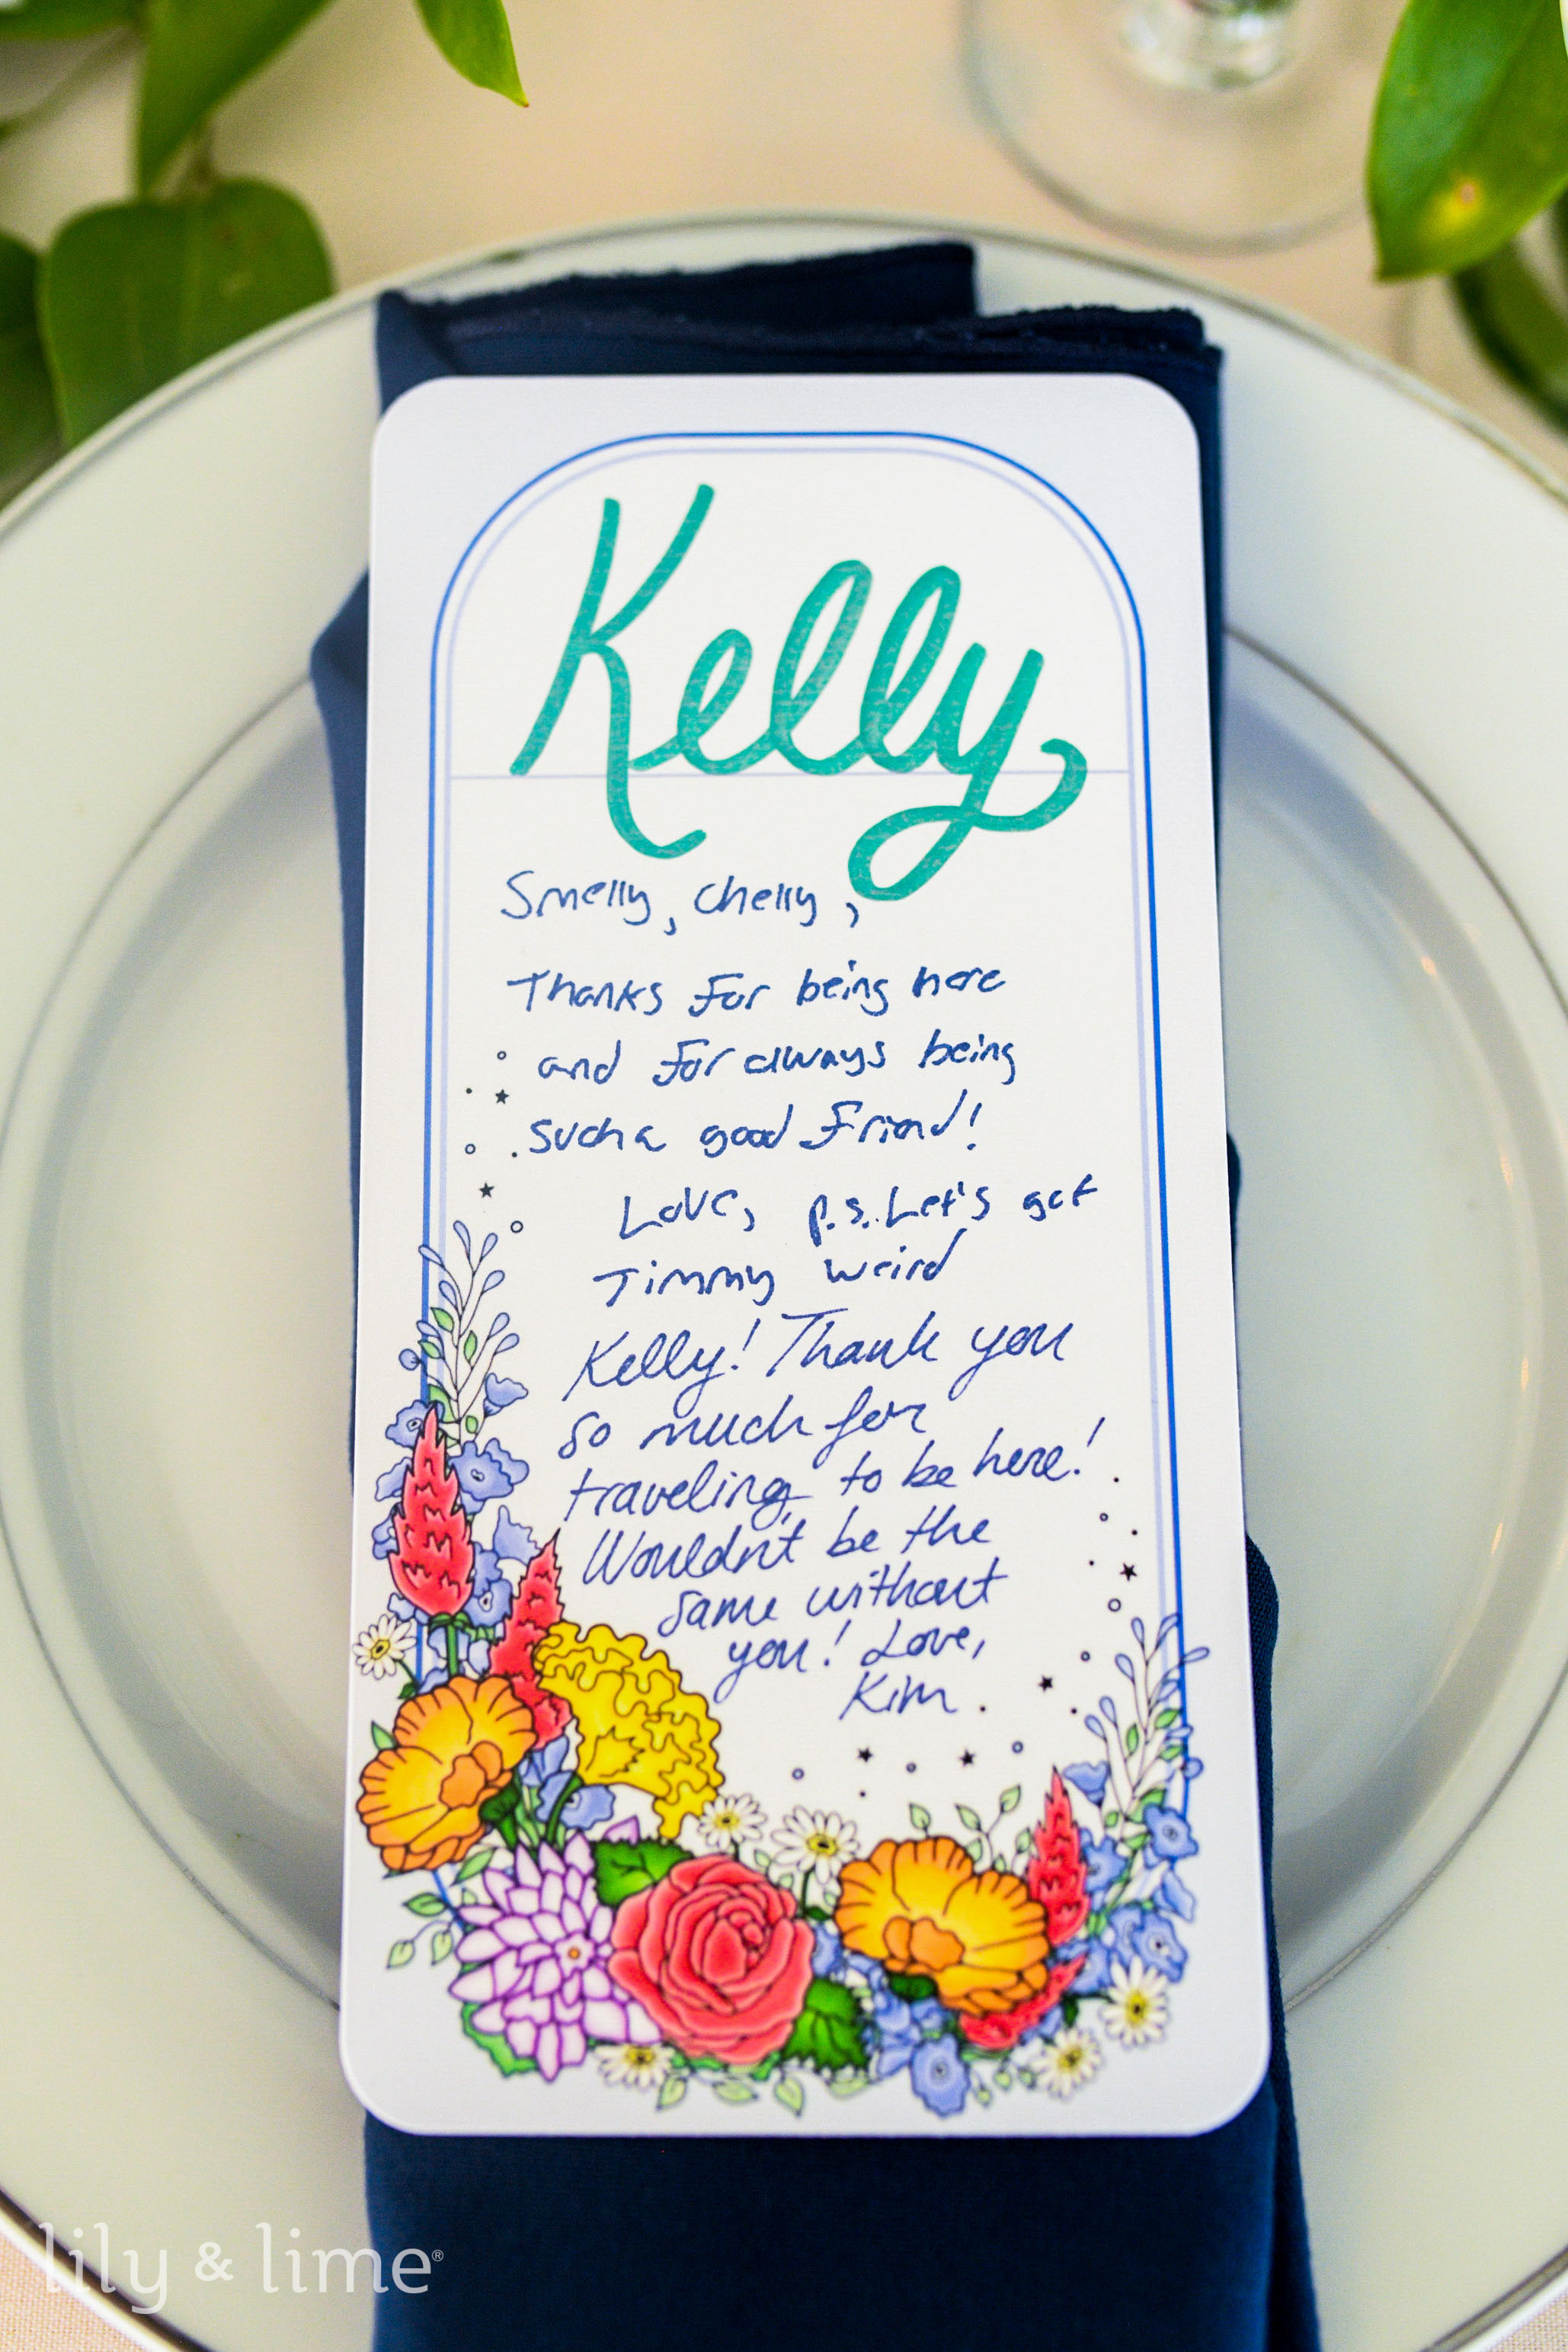 Kelly
Smelly, Chelly,
Thanks for being here
and for always being
such a good friend!
Love, P.S. Let's get
Timmy weird
Kelly! Thank you
so much for
traveling to be here!
Wouldn't be the
same without
you! Love,
Kim
lily & lime®